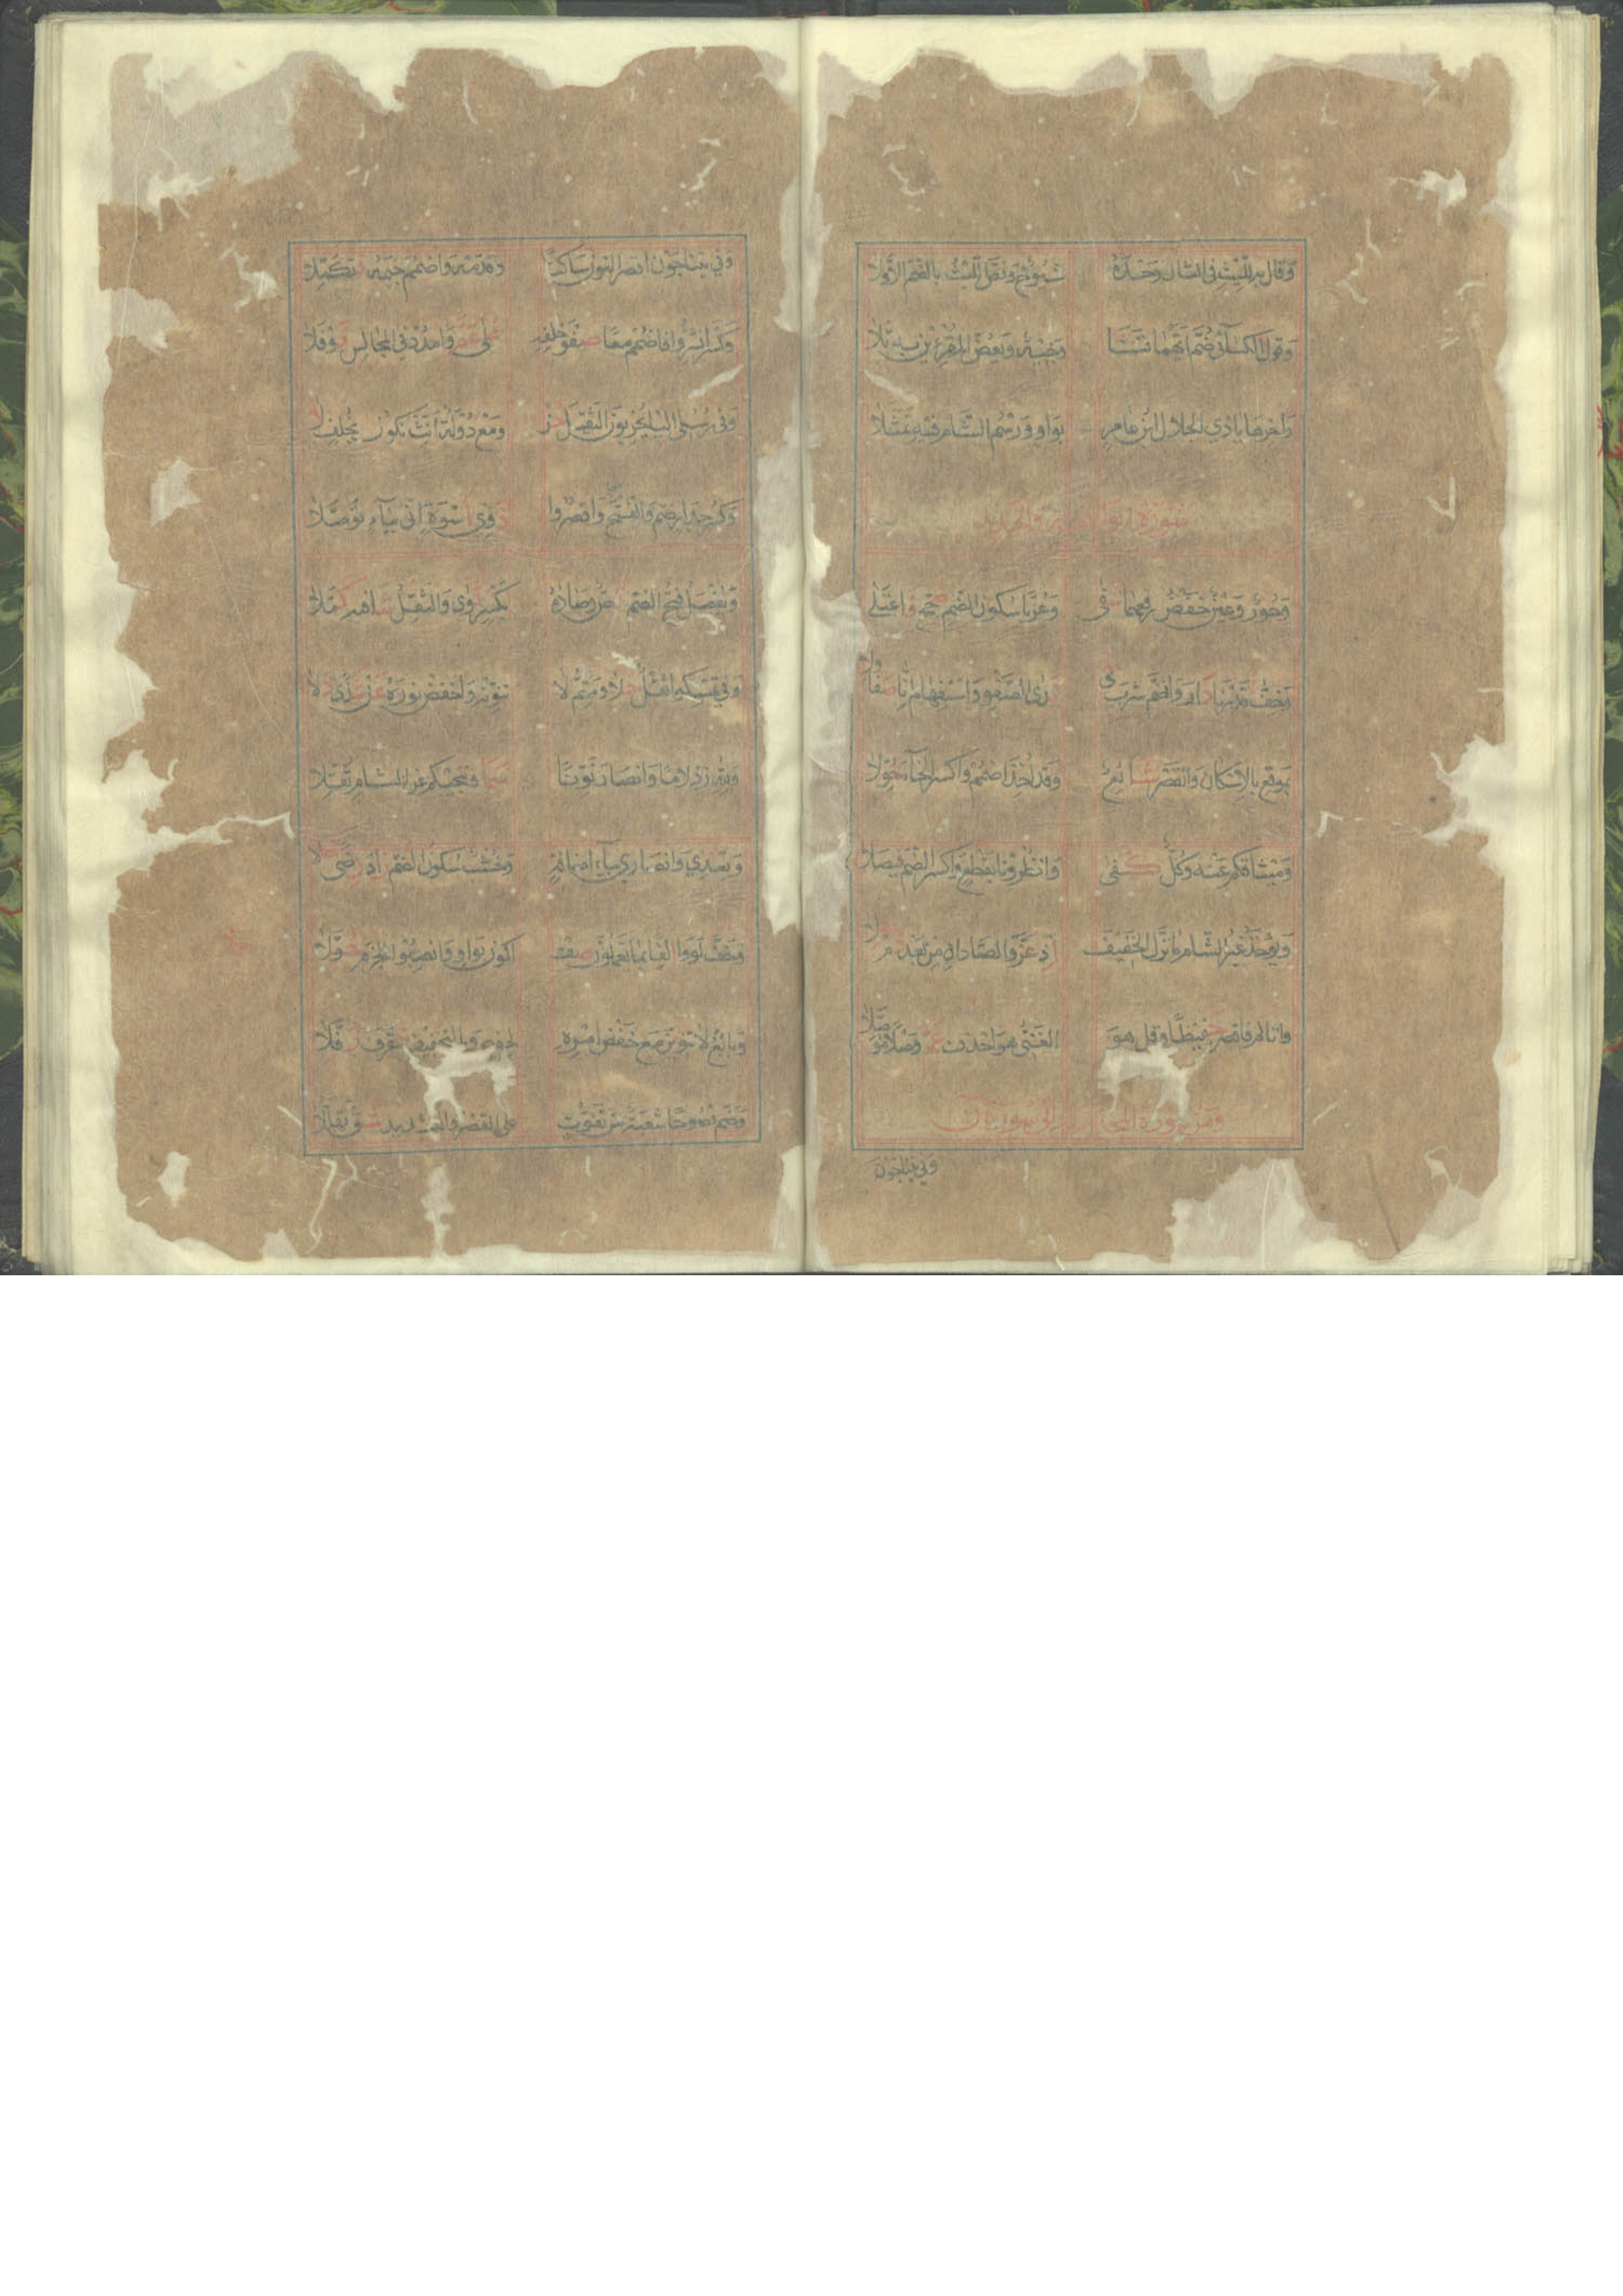 وقال به لليث في الثان وحده شيوخ ونص الليث بالضم الاولا
وقول الكسائي ضم ايهما تشا وجيه وبعض المقرئين به تلا
واخرها يا ذي الجلال ابن عامر بواو ورسم الشام فيه تمثلا
سورة الواقعة والحديد
وحور وعين خفض رفعهما شفى وعربا سكون الضم صحح فاعتلى
وخف قدرنا دار وانضم شرب في ندى الصفو واستفهام انا صفا ولا
بموقع بالاسكان والقصر شائع وقد اخذ اضمم واكسر الخاء حولا
وميثاقكم عنه وكل كفى وانظرونا بقطع واكسر الضم فيصلا
ويؤخذ غير الشام ما نزل الخفيف اذ عز والصادان من بعد دم صلا
واتاكم فاقصر حفيظا وقل هو الغني هو احذف عم وصلا موصلا
ومن سورة المجادلة الى سورة ن
وفي يتناجون
وفي يتناجون اقصر النون ساكنا وقدمه واضمم جيمه تكملا
وكسر انشزوا فاضمم معا صفو خلفه على عم وامدد في المجالس نوفلا
وفي رسلي اليا يخربون الثقيل حز ومع دولة انث يكون بخلف لا
وكسر جدار ضم والفتح واقصروا ذوي اسوة اني بياء توصلا
ويفصل فتح الضم نص وصاده بكسر ثوى والثقل شافيه كملا
وفي تمسكوا ثقل حلا ومتم لا تنونه واخفض نوره عن شذى دلا
ولله زد لاما وانصار نونا سما وتنجيكم عن الشام ثقلا
وبعدي وانصاري بياء اضافة وخشب سكون الضم زاد رضى حلا
وخف لووا الفا بما يعملون صف اكون بواو وانصبوا الجزم حفلا
وبالغ لا تنوين مع خفض امره لحفص وبالتخفيف عرف رفلا
وضم نصوحا شعبة من تفوت على القصر والتشديد شق تهللا